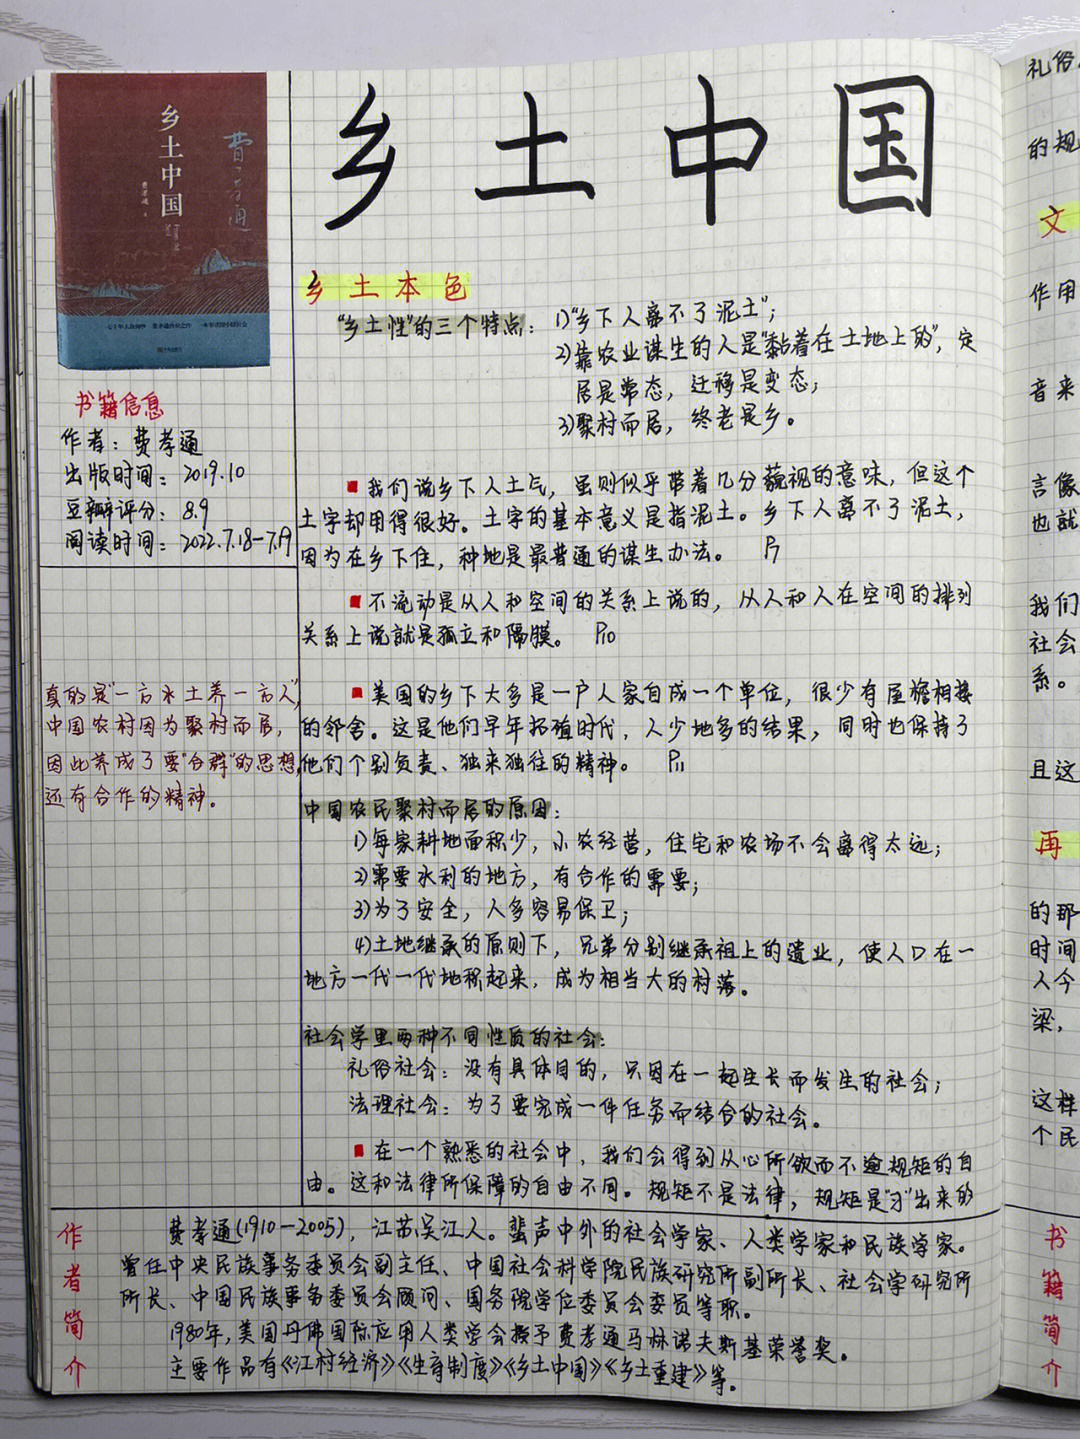 乡土中国
乡土中国
费孝通 著
费孝通
书籍信息
作者：费孝通
出版时间：2019.10
豆瓣评分：8.9
阅读时间：2022.7.18-7.19
真的是“一方水土养一方人”，
中国农村因为聚村而居，
因此养成了要“合群”的思想，
还有合作的精神。
乡土本色
“乡土性”的三个特点：1)“乡下人离不了泥土”；
2)靠农业谋生的人是“黏着在土地上的”，定
居是常态，迁移是变态；
3)聚村而居，终老是乡。
我们说乡下人土气，虽则似乎带着几分藐视的意味，但这个
土字却用得很好。土字的基本意义是指泥土。乡下人离不了泥土，
因为在乡下住，种地是最普通的谋生办法。 P7
不流动是从人和空间的关系上说的，从人和人在空间的排列
关系上说就是孤立和隔膜。 P10
美国的乡下大多是一户人家自成一个单位，很少有屋檐相接
的邻舍。这是他们早年拓殖时代，人少地多的结果，同时也保持了
他们个别负责、独来独往的精神。 P11
中国农民聚村而居的原因：
1)每家耕地面积少，小农经营，住宅和农场不会离得太远；
2)需要水利的地方，有合作的需要；
3)为了安全，人多容易保卫；
4)土地继承的原则下，兄弟分别继承祖上的遗业，使人口在一
地方一代一代地积起来，成为相当大的村落。
社会学里两种不同性质的社会：
礼俗社会：没有具体目的，只因在一起生长而发生的社会；
法理社会：为了要完成一件任务而结合的社会。
在一个熟悉的社会中，我们会得到从心所欲而不逾规矩的自
由。这和法律所保障的自由不同。规矩不是法律，规矩是“习”出来的
作者简介
费孝通(1910-2005)，江苏吴江人。蜚声中外的社会学家、人类学家和民族学家。
曾任中央民族事务委员会副主任、中国社会科学院民族研究所副所长、社会学研究所
所长、中国民族事务委员会顾问、国务院学位委员会委员等职。
1980年，美国丹佛国际应用人类学会授予费孝通马林诺夫斯基荣誉奖。
主要作品有《江村经济》《生育制度》《乡土中国》《乡土重建》等。
礼俗
的规
文
作用
音来
言像
也就
我们
社会
系。
且这
再
的那
时间
人今
梁，
这样
个民
书籍简介